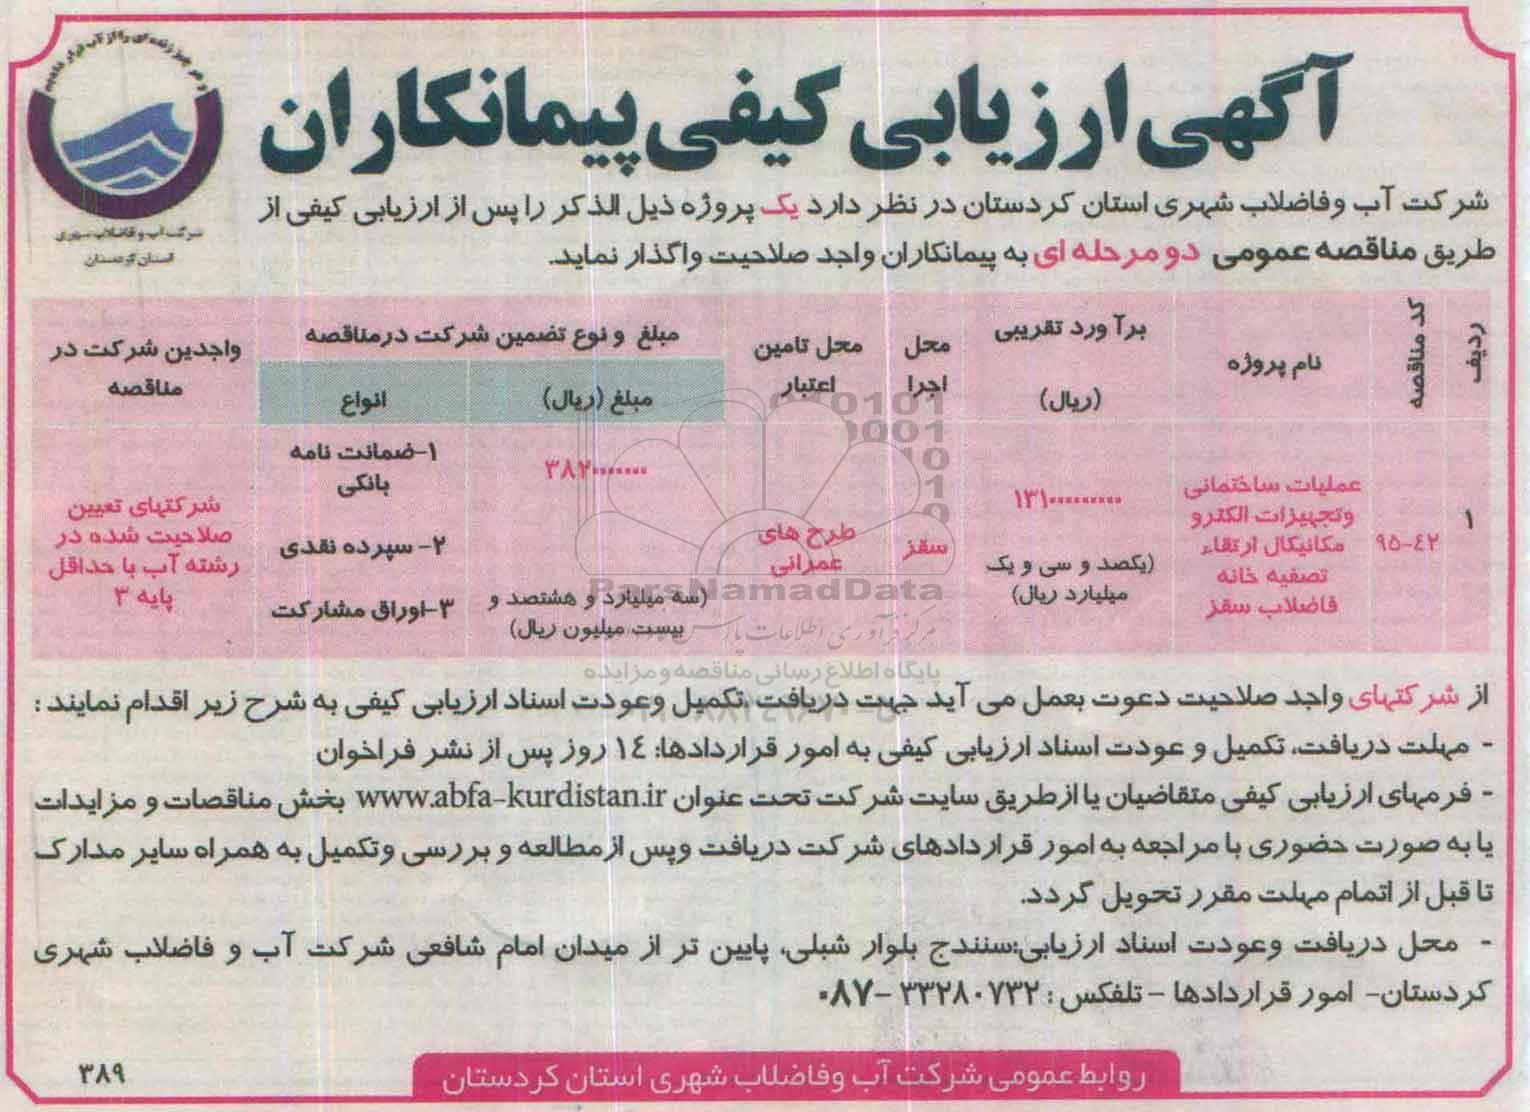 و هر چیز زنده ای را از آب قرار دادیم
شرکت آب و فاضلاب شهری
استان کردستان
آگهی ارزیابی کیفی پیمانکاران
شرکت آب وفاضلاب شهری استان کردستان در نظر دارد یک پروژه ذیل الذکر را پس از ارزیابی کیفی از
طریق مناقصه عمومی دو مرحله ای به پیمانکاران واجد صلاحیت واگذار نماید.
ردیف
کد مناقصه
نام پروژه
برآ ورد تقریبی
(ریال)
محل
اجرا
محل تامین
اعتبار
مبلغ و نوع تضمین شرکت درمناقصه
مبلغ (ریال)
انواع
واجدین شرکت در
مناقصه
۱
۹۵-۴۲
عملیات ساختمانی
وتجهیزات الکترو
مکانیکال ارتقاء
تصفیه خانه
فاضلاب سقز
۱۳۱۰۰۰۰۰۰۰۰۰
(یکصد و سی و یک
میلیارد ریال)
سقز
طرح های
عمرانی
۳۸۲۰۰۰۰۰۰۰
(سه میلیارد و هشتصد و
بیست میلیون ریال)
۱-ضمانت نامه
بانکی
۲- سپرده نقدی
۳-اوراق مشارکت
شرکتهای تعیین
صلاحیت شده در
رشته آب با حداقل
پایه ۳
ParsNamadData
پایگاه اطلاع رسانی مناقصه و مزایده
از شرکتهای واجد صلاحیت دعوت بعمل می آید جهت دریافت ،تکمیل وعودت اسناد ارزیابی کیفی به شرح زیر اقدام نمایند :
- مهلت دریافت، تکمیل و عودت اسناد ارزیابی کیفی به امور قراردادها: ۱۴ روز پس از نشر فراخوان
- فرمهای ارزیابی کیفی متقاضیان یا ازطریق سایت شرکت تحت عنوان www.abfa-kurdistan.ir بخش مناقصات و مزایدات
یا به صورت حضوری با مراجعه به امور قراردادهای شرکت دریافت وپس ازمطالعه و بررسی وتکمیل به همراه سایر مدارک
تا قبل از اتمام مهلت مقرر تحویل گردد.
- محل دریافت وعودت اسناد ارزیابی:سنندج بلوار شبلی، پایین تر از میدان امام شافعی شرکت آب و فاضلاب شهری
کردستان- امور قراردادها - تلفکس : ۳۳۲۸۰۷۳۲ -۰۸۷
روابط عمومی شرکت آب وفاضلاب شهری استان کردستان
۳۸۹